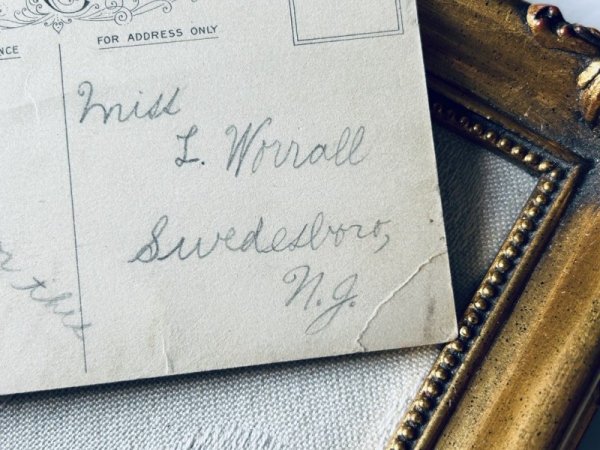 NCE
FOR ADDRESS ONLY
Miss
L. Worrall
Swedesboro,
N.J.
this